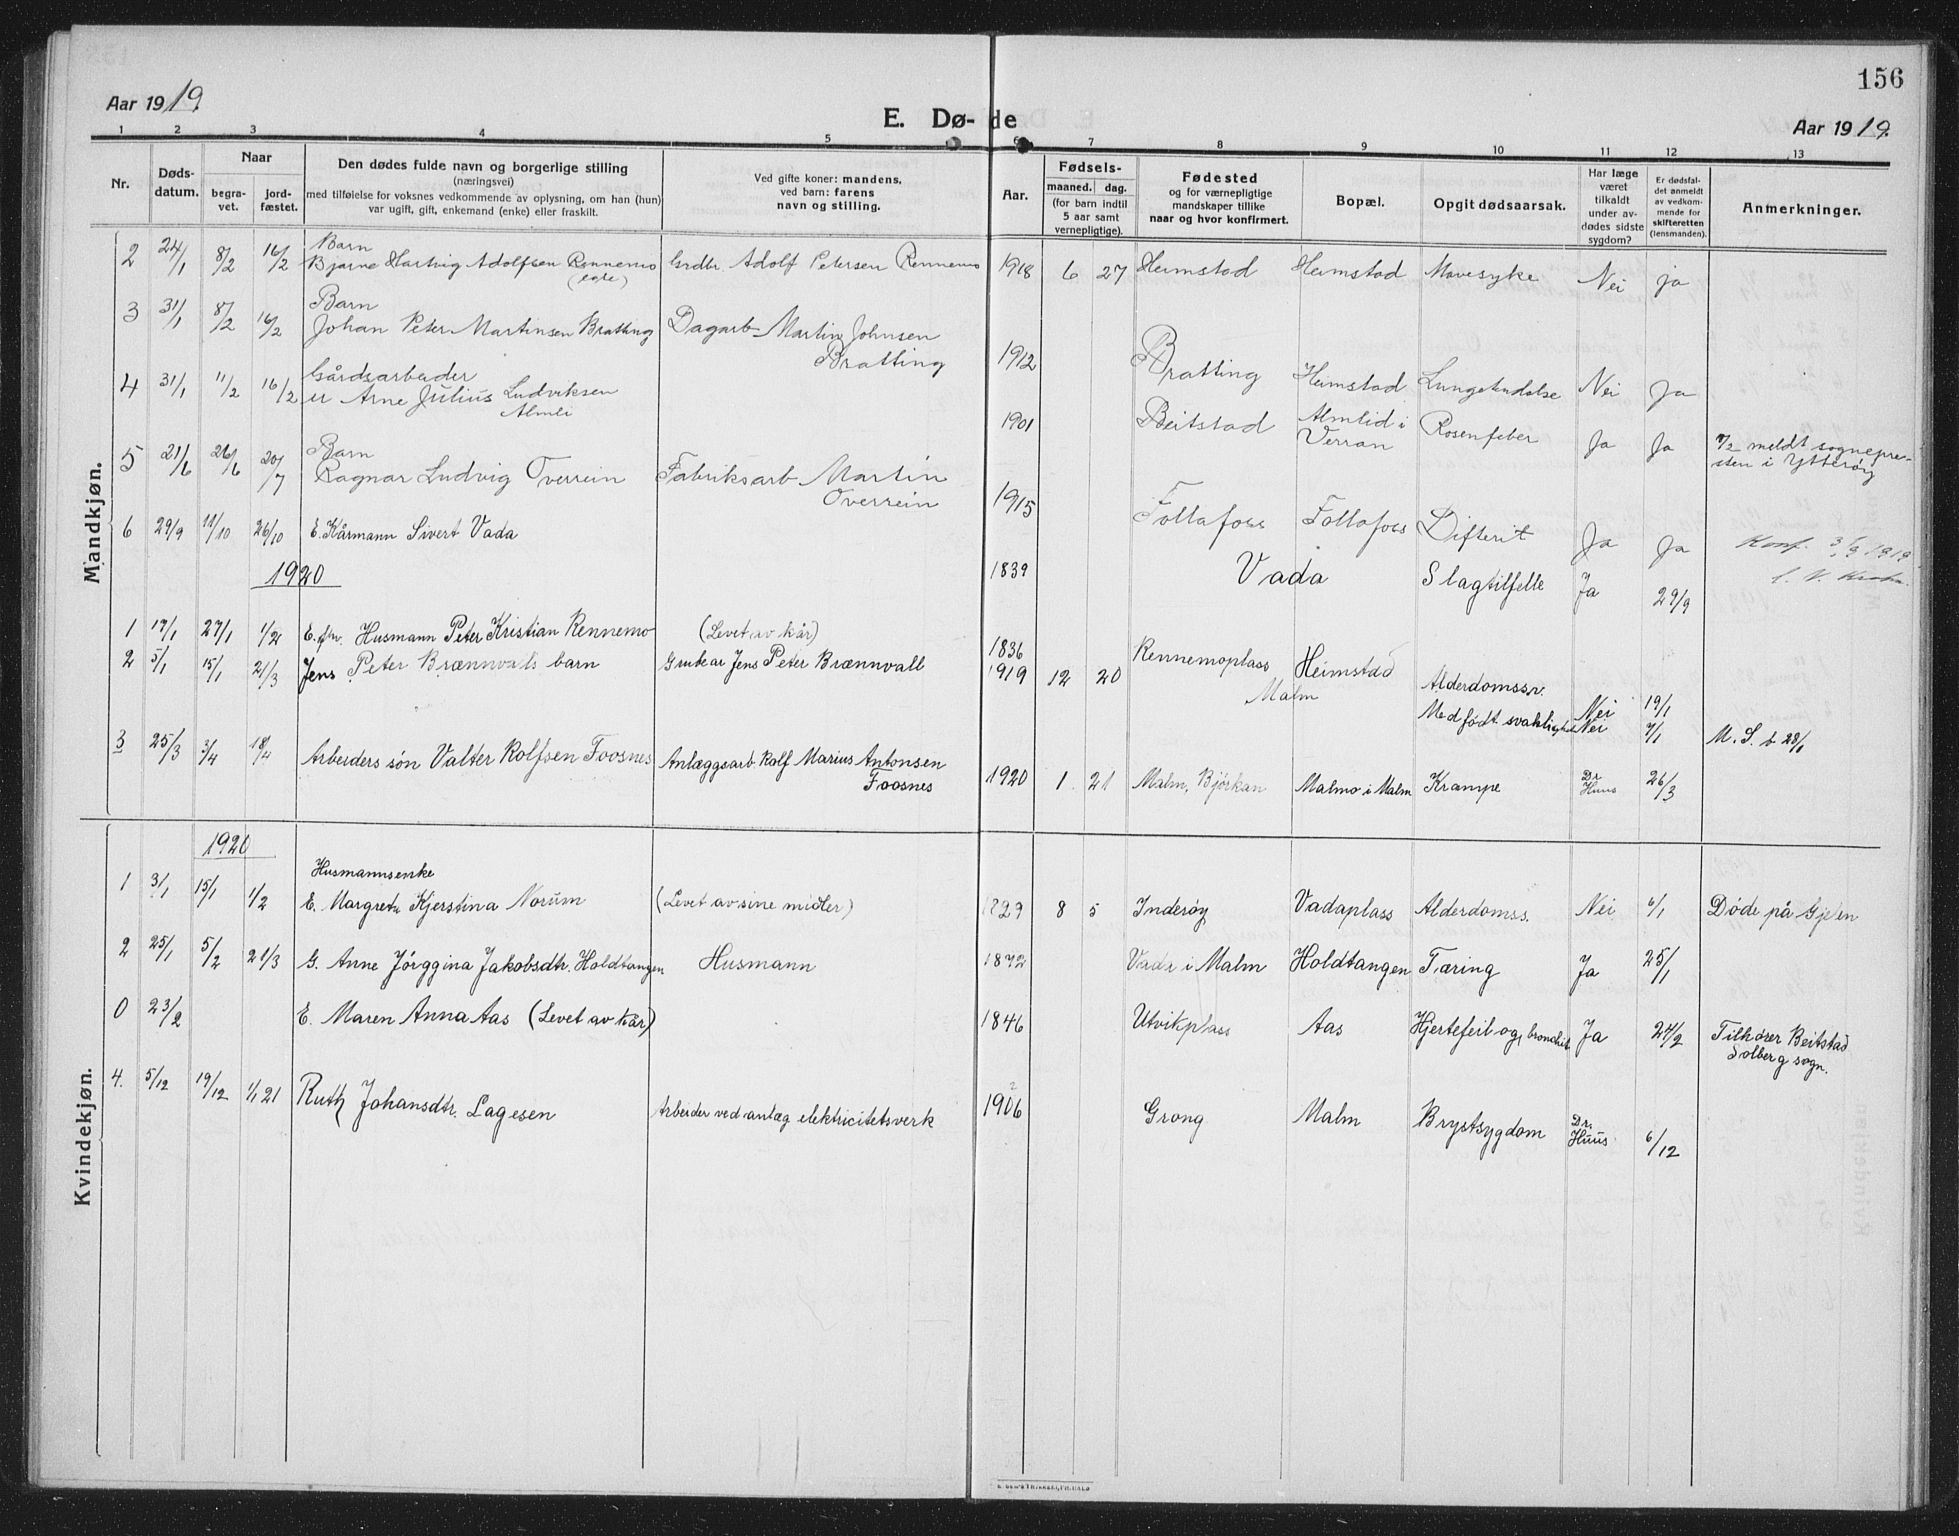 156
Aar 1919.
E. Dø- de
Aar 1919.
1 2 3 4 5 6 7 8 9 10 11 12 13
Nr.
Døds-
datum.
Naar
begra-
vet.
jord-
fæstet.
Den dødes fulde navn og borgerlige stilling
(næringsvei)
med tilføielse for voksnes vedkommende av oplysning, om han (hun)
var ugift, gift, enkemand (enke) eller fraskilt.
Ved gifte koner: mandens,
ved barn: farens
navn og stilling.
Aar.
Fødsels-
maaned. dag.
(for barn indtil
5 aar samt
vernepligtige).
Fødested
og for værnepligtige
mandskaper tillike
naar og hvor konfirmert.
Bopæl.
Opgit dødsaarsak.
Har læge
været
tilkaldt
under av-
dødes sidste
sygdom?
Er dødsfal-
det anmeldt
av vedkom-
mende for
skifteretten
(lensmanden).
Anmerkninger.
Mandkjøn.
Barn
2 24/1 8/2 16/2 Bjarne Hartvig Adolfsen Rennemo Grdbr. Adolf Petersen Rennemo 1918 6 27 Heimstad Heimstad Mavesyke Nei ja
(egte)
Barn
3 31/1 8/2 16/2 Johan Peter Martinsen Bratting Dagarb Martin Johnsen
Bratting 1912 Bratting Heimstad Lungetndelse Nei Ja
Gårdsarbeider
4 31/1 11/2 16/2 u Arne Julius Ludviksen
Almli
1901 Beitstad Almlid i
Verran Rosenfeber Ja Ja 7/2 meldt sognepre-
sten i Ytterøy
Barn
5 21/6 26/6 20/7 Ragnar Ludvig Overrein Fabriksarb Martin
Overrein 1915 Follafoss Follafoss Difterit Ja Ja
6 29/9 11/10 26/10 E. Kårmann Sivert Vada 1839 Vada Slagtilfelle Ja 29/9
Konf. 3/9 1919
1920
1 17/1 27/1 1/2 E. Husmann Peter Kristian Rennemo (Levet av kår) 1836 Rennemoplass Heimstad Alderdomssv. Nei 19/1
2 5/1 15/1 21/3 Jens Peter Brænnvalls barn Grubear Jens Peter Brænnvall 1919 12 20 Malm Medfødt svaklighet Nei 7/1 M. S. b 28/1
3 25/3 3/4 18/4 Arbeiders søn Valter Rolfsen Foosnes Anlæggsarb. Rolf Marius Antonsen
Foosnes 1920 1 21 Malm, Bjørkan Malmo i Malm Krampe Dr
Huus 26/3
Kvindekjøn.
1920
Husmannsenke
1 3/1 15/1 1/2 E. Margrete Kjerstina Norum (Levet av sine midler) 1829 8 5 Inderøy Vadaplass Alderdomss. Nei 6/1 Døde på Gjelen
2 25/1 5/2 21/3 G. Anne Jørggina Jakobsdtr. Holdtangen Husmann 1872 Vada i Malm Holdtangen Tæring Ja 25/1
0 23/2 E. Maren Anna Aas (Levet av kår) 1846 Utvikplass Aas Hjertefeil og bronchit Ja 24/2 Tilhører Beitstad
Solberg sogn.
4. 5/12 19/12 1/1 21 Ruth Johansdtr. Lagesen Arbeider ved anlæg elektricitetsverk 1906 2 Grong Malm Brystsygdom Dr.
Huus 6/12